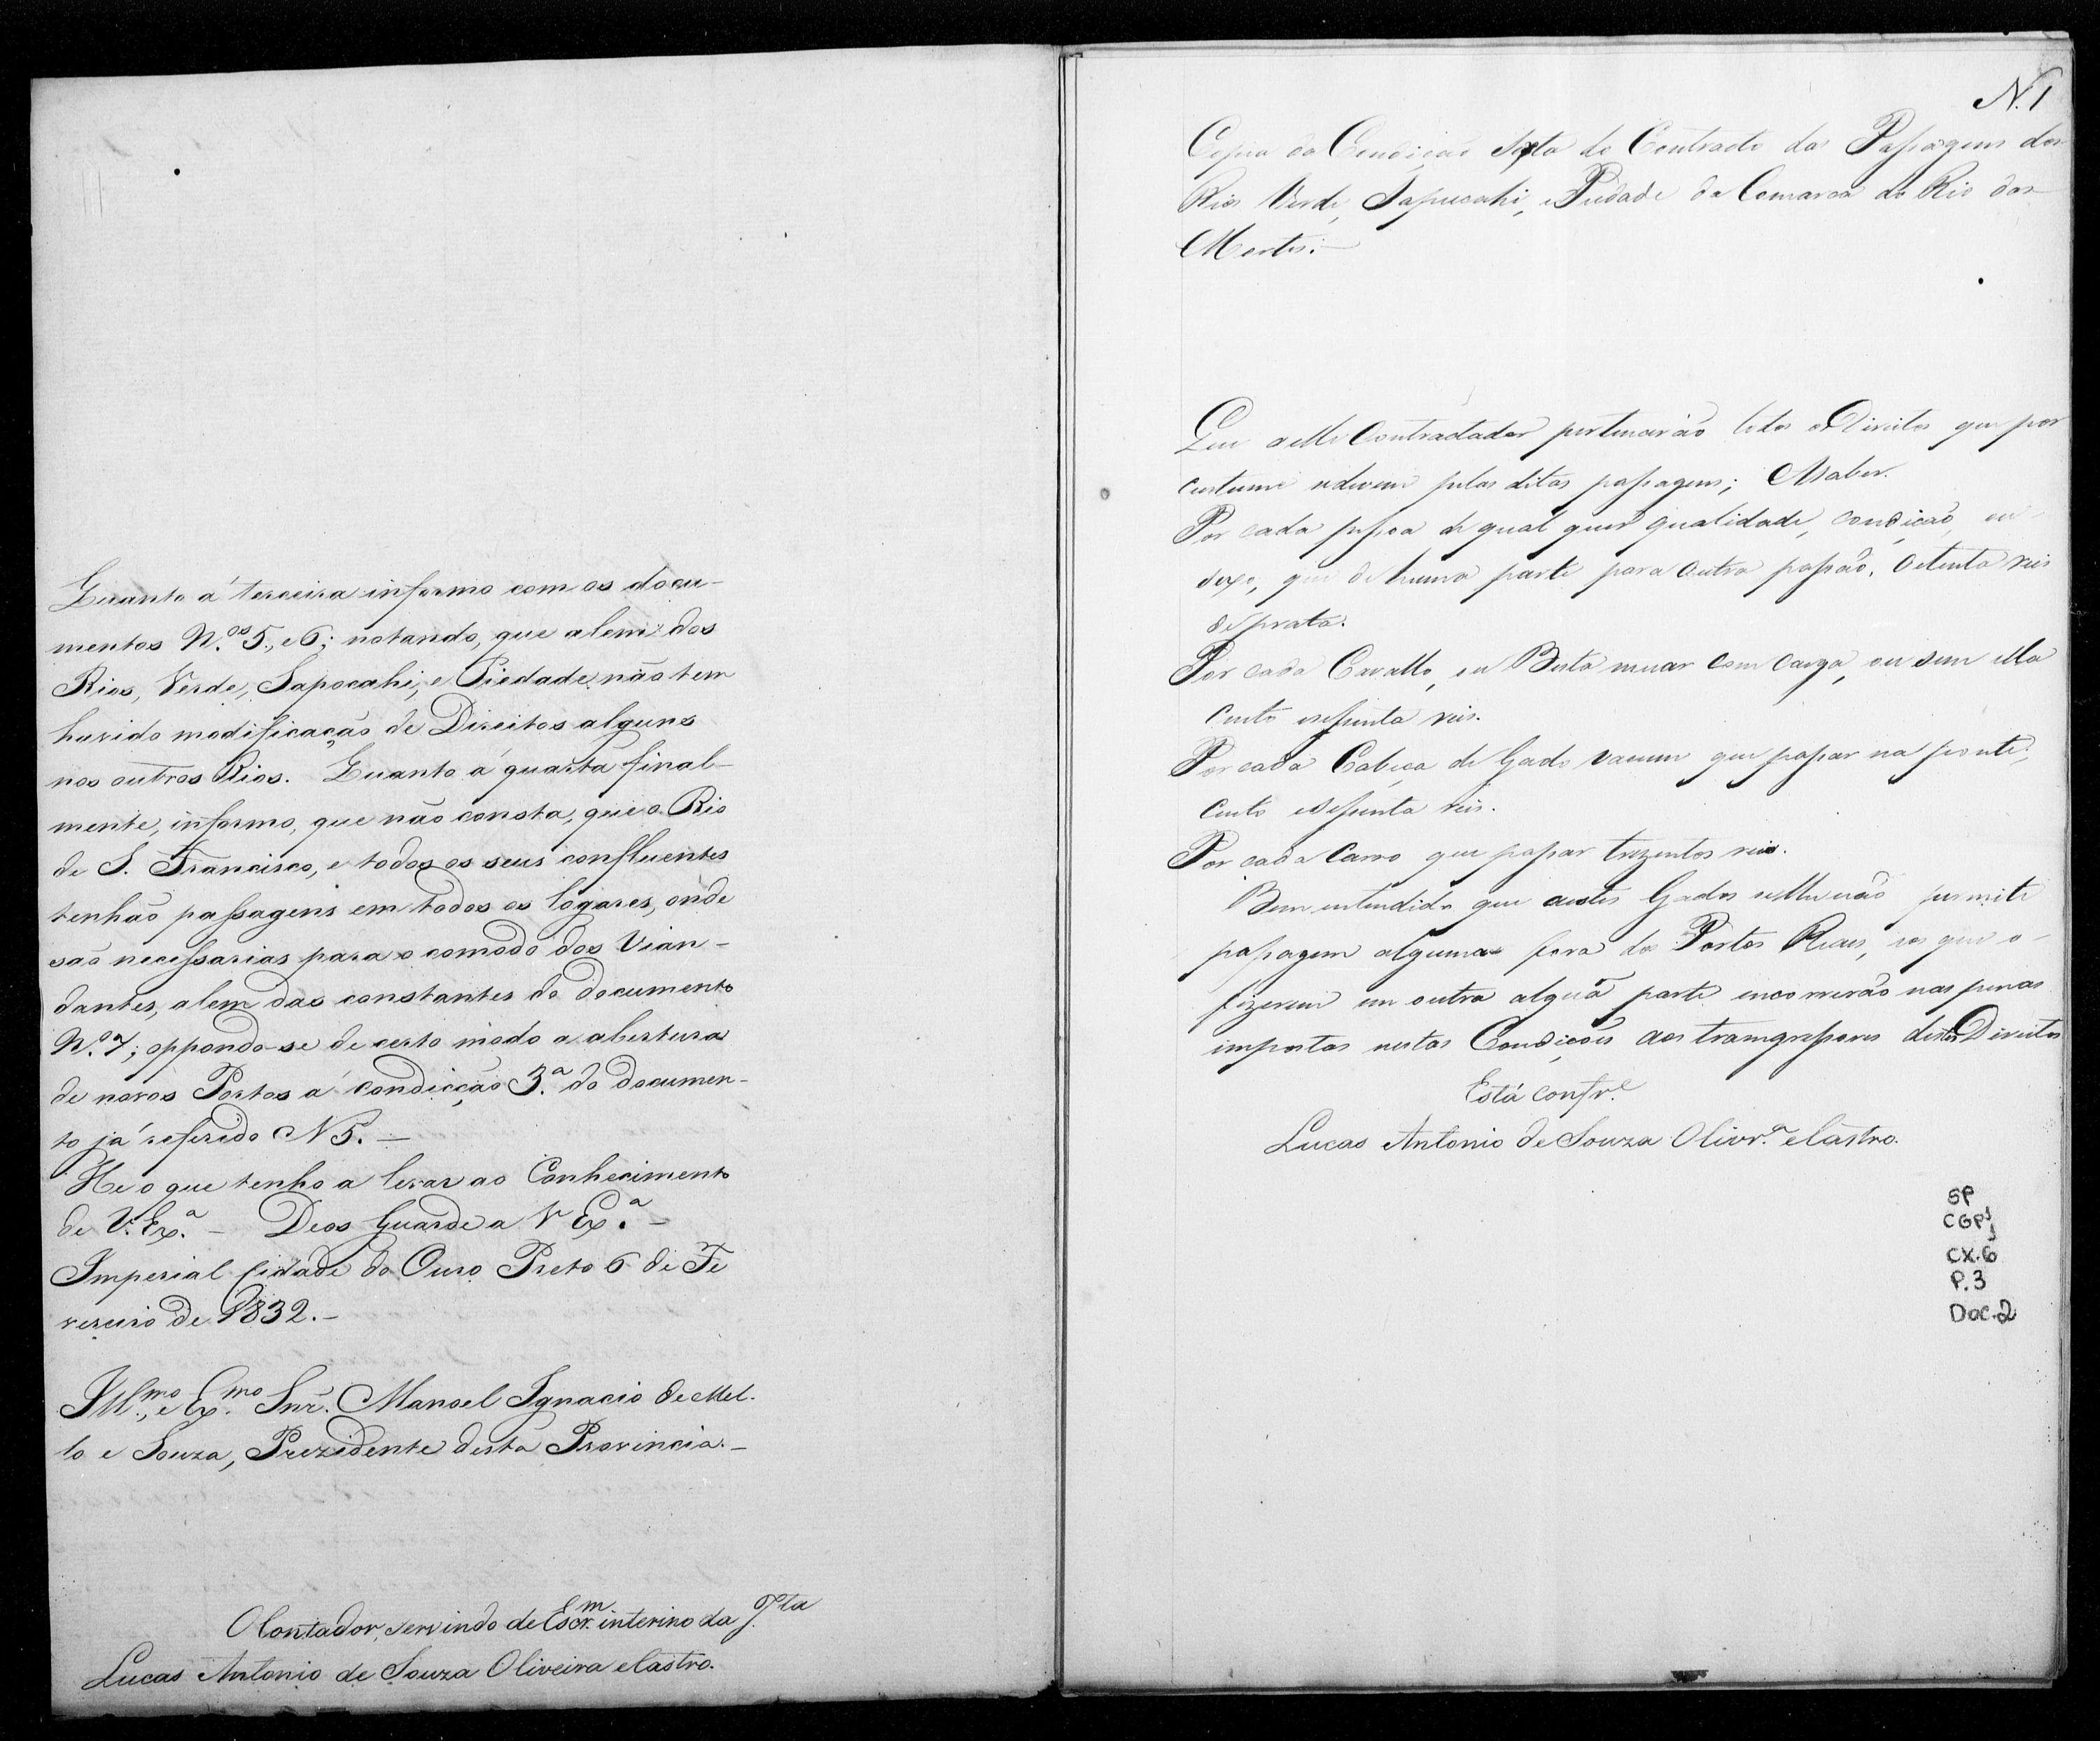 Quanto á terceira informo com os docu-
mentos N.os 5., e 6; notando, que alem dos
Rios, Verde, Sapocahi, e Piedade não tem
havido modificação de Direitos alguns
nos outros Rios. Quanto á quarta final-
mente, informo, que não consta, que o Rio
de S. Francisco, e todos os seus confluentes
tenhão passagens em todos os logares, onde
são necessarias para o comodo dos Vian-
dantes, alem das constantes do documento
N.o 7; oppondo-se de certo modo a abertura
de novos Portos a condicção 3.a do documen-
to já referido N 5. —
He o que tenho a levar ao Conhecimento
de V. Ex.a — Deos Guarde a V Ex.a —
Imperial Cidade do Ouro Preto 6 de Fe
vereiro de 1832. —
Ill.mo, e Ex.mo Snr. Manoel Ignacio de Mel-
lo e Souza, Prezidente desta Provincia. —
O Contador, servindo de Escr.m interino da J.ta
Lucas Antonio de Souza Oliveira e Castro.
N. 1
Copia da Condição Sexta do Contracto das Passagens dos
Rios Verde, Sapucahi, e Piedade da Comarca do Rio das
Mortes: —
Que a elle Contractador pertencerão todos os Direitos que por
custume se devem pelas ditas passagens; A saber.
Por cada pessoa de qual quer qualidade, condição, ou
sexo, que de huma parte para outra passão, oitenta reis
de prata.
Por cada Cavallo, ou Besta muar com carga, ou sem ella
cento e sessenta reis.
Por cada Cabeça de Gado vacum que passar na ponte;
cento e sessenta reis.
Por cada Carro que passar trezentos reis.
Bem entendido que a estes Gados se lhe não permite
passagem alguma fora dos Portos Reaes, e os que o
fizerem em outra algũa parte encorrerão nas penas
impostas nestas Condições aos transgressores destes Direitos
Está confr.e
Lucas Antonio de Souza Olivr.a e Castro.
SP
CGP1
CX. 6
P. 3
Doc. 2